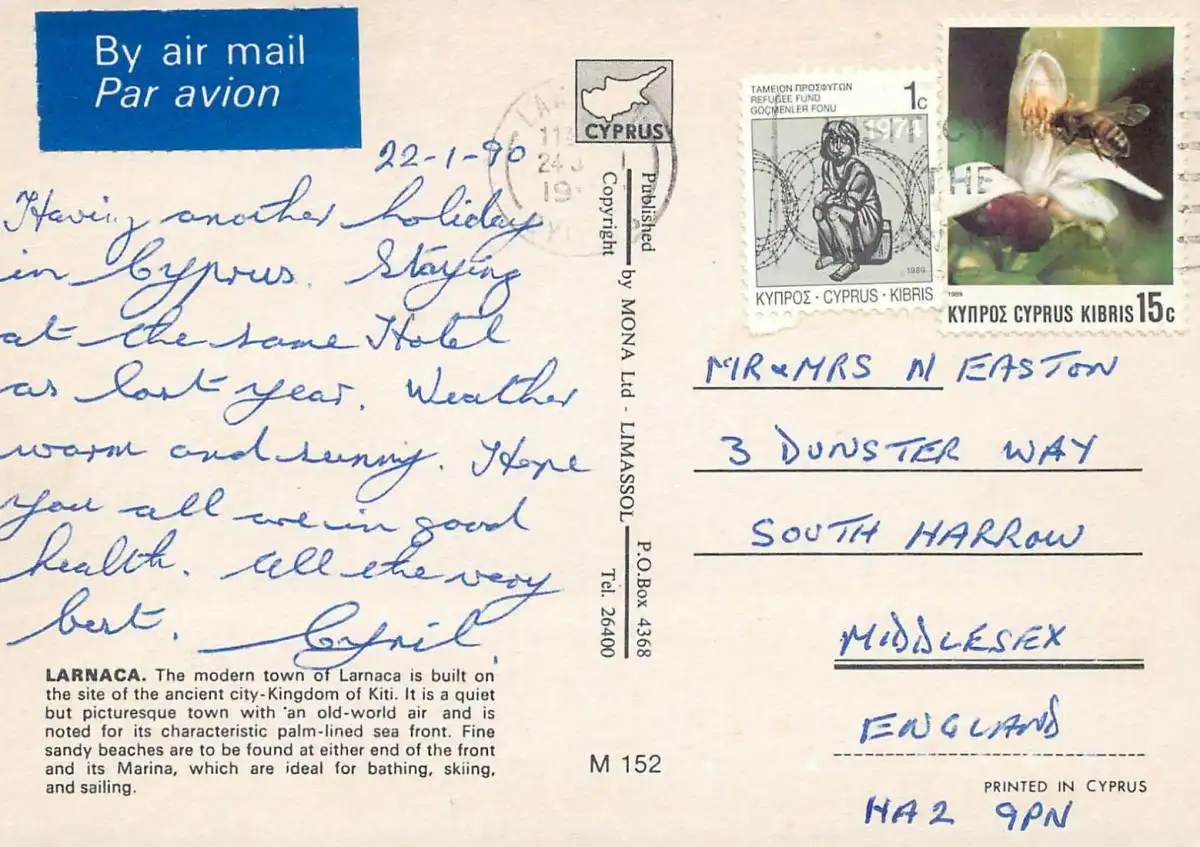 By air mail
Par avion
22-1-90
Having another holiday
in Cyprus. Staying
at the same Hotel
as last year. Weather
warm and sunny. Hope
you all are in good
health. All the very
best. Cyril.
LARNACA. The modern town of Larnaca is built on
the site of the ancient city-Kingdom of Kiti. It is a quiet
but picturesque town with an old-world air and is
noted for its characteristic palm-lined sea front. Fine
sandy beaches are to be found at either end of the front
and its Marina, which are ideal for bathing, skiing,
and sailing.
CYPRUS
Published by MONA Ltd - LIMASSOL P.O.Box 4368
Copyright Tel. 26400
M 152
ΤΑΜΕΙΟΝ ΠΡΟΣΦΥΓΩΝ
REFUGEE FUND
GÖÇMENLER FONU
1c
1974
1989
ΚΥΠΡΟΣ · CYPRUS · KIBRIS
1989
ΚΥΠΡΟΣ CYPRUS KIBRIS 15c
THE
MR & MRS N EASTON
3 DUNSTER WAY
SOUTH HARROW
MIDDLESEX
ENGLAND
PRINTED IN CYPRUS
HA2 9PN